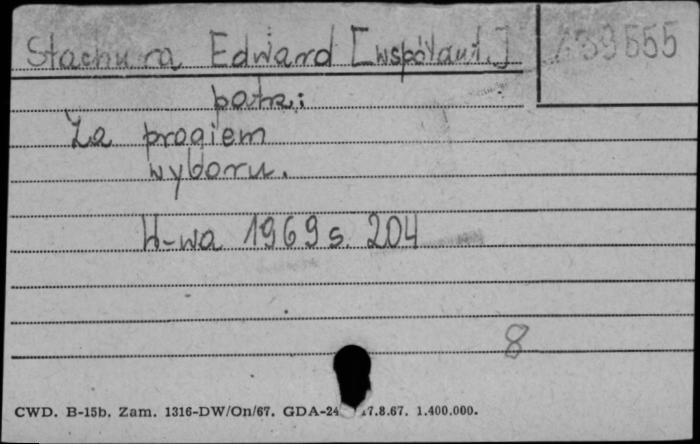 Stachura Edward [współaut.]
patrz:
Za progiem
wyboru.
W-wa 1969 s. 204
8
CWD. B-15b. Zam. 1316-DW/On/67. GDA-24 17.8.67. 1.400.000.